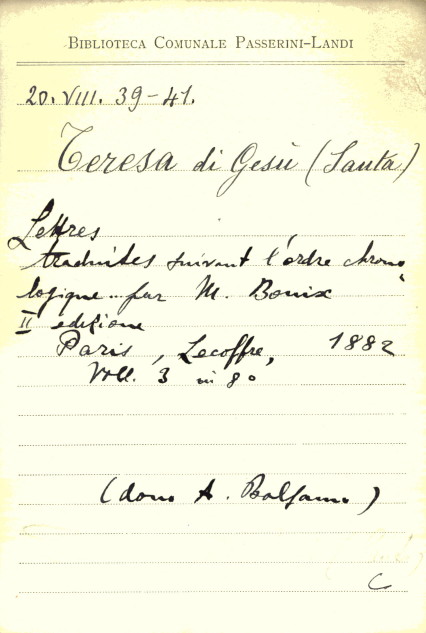 BIBLIOTECA COMUNALE PASSERINI-LANDI
20. VIII. 39-41.
Teresa di Gesù (Santa)
Lettres
traduites suivant l'ordre chrono
logique .. par M. Bouix
II edizione
Paris, Lecoffre, 1882
Voll. 3 in 8º
(dono A. Balsamo)
C